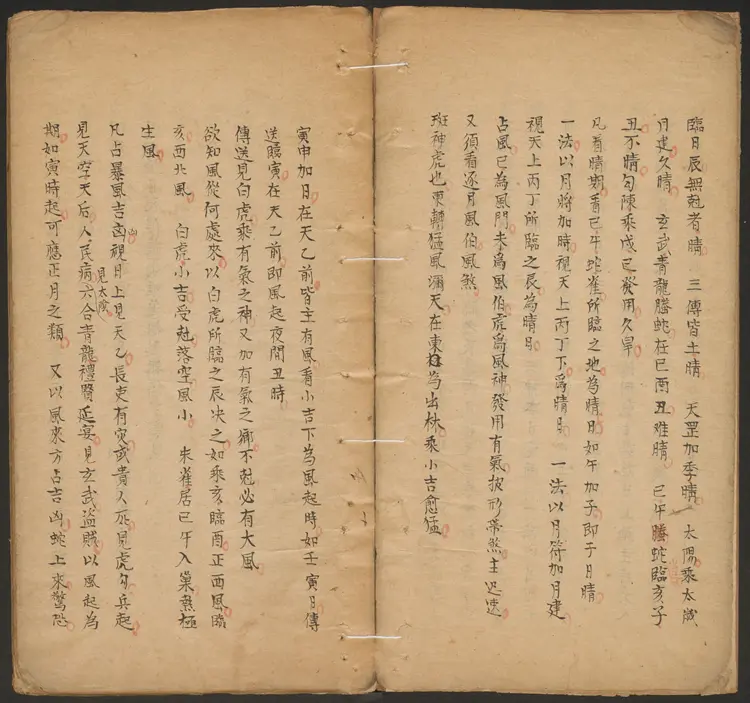 臨日辰無尅者晴　三傳皆土晴　天罡加季晴　太陽乘太歲
月建久晴　玄武青龍螣蛇在巳酉丑难晴　巳午螣蛇臨亥子
丑不晴勾陳乘戌巳發用久旱
凡看晴期看巳午蛇雀所臨之地為晴日如午加子即子日晴
一法以月將加時視天上丙丁下爲晴日　一法以月符加月建
視天上丙丁所臨之辰為晴日
占風巳為風門未爲風伯虎爲風神發用有氣披形帶煞主迅速
又須看逐月風伯風煞
斑神虎也東轉猛風瀰天在東為出林乘小吉愈猛
寅申加日在天乙前皆主有風看小吉下為風起時如壬寅日傳
送臨寅在天乙前即風起夜間丑時
傳送見白虎乘有氣之神又加有氣之鄉不尅必有大風
欲知風從何處來以白虎所臨之辰决之如乘亥臨酉正西風臨
亥西北風　白虎小吉受尅落空風小　朱雀居巳午入巢熱極
生風
凡占暴風吉凶視月上見天乙長吏有灾或貴人死見虎勾兵起
凶
見天空天后人民病六合青龍禮賢延宴見玄武盗賊以風起為
見太歲
期如寅時起可應正月之類　又以風來方占吉凶蛇上來驚恐